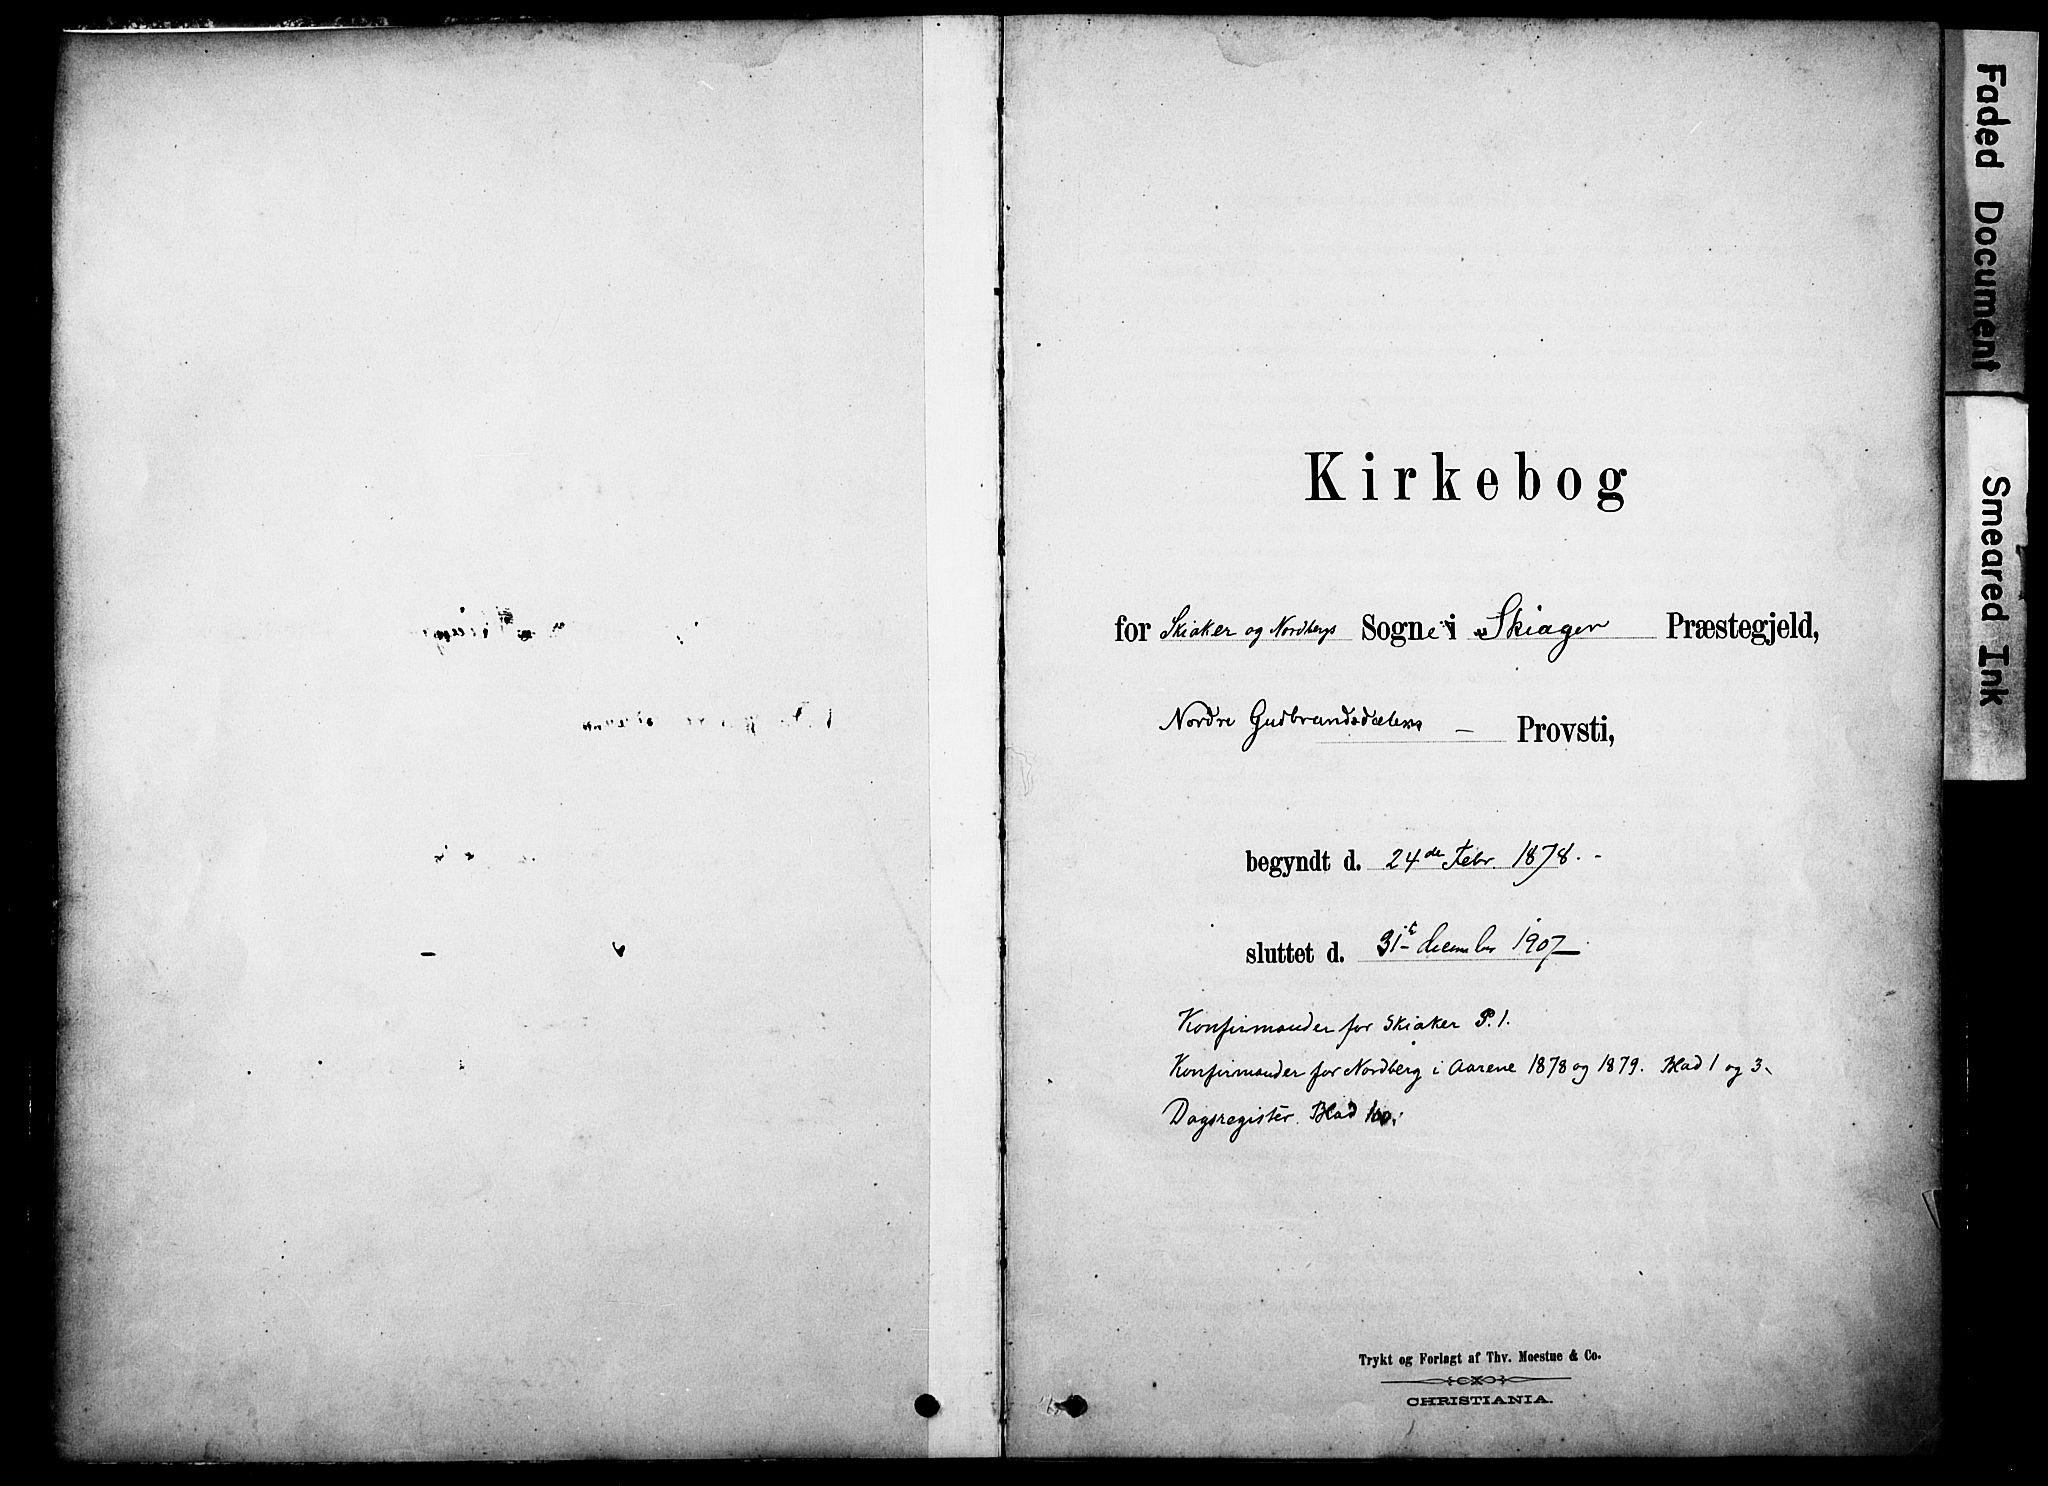 Kirkebog
for Skiaker og Nordbergs Sogne i Skiager Præstegjeld,
Nordre Gudbrandsdalens — Provsti,
begyndt d. 24de Febr. 1878.
sluttet d. 31te december 1907
Konfirmander for Skiaker P. 1.
Konfirmander for Nordberg i Aarene 1878 og 1879. Blad 1 og 3.
Dagsregister. Blad 100.
Trykt og Forlagt af Thv. Moestue & Co.
CHRISTIANIA.
Faded Document
Smeared Ink